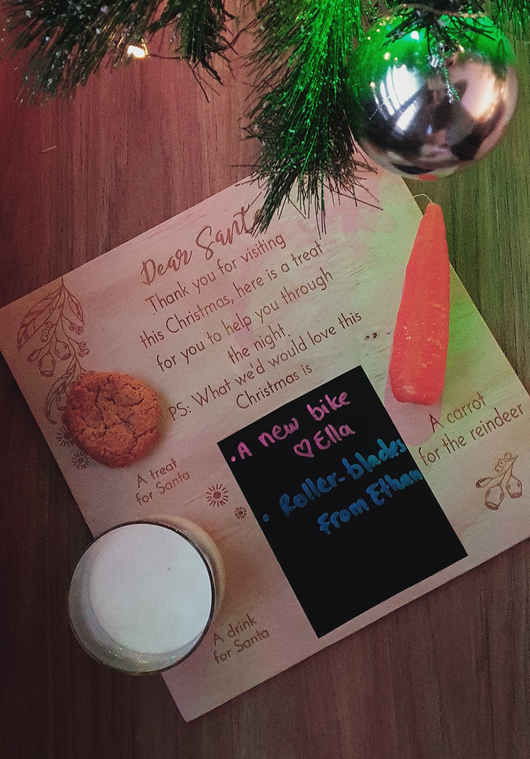 Dear Sant
Thank you for visiting
this Christmas, here is a treat
for you to help you through
the night.
PS: What we'd would love this
Christmas is
• A new bike
♡ Ella
• Roller-blades
from Ethan
A carrot
for the reindeer
A treat
for Santa
A drink
for Santa